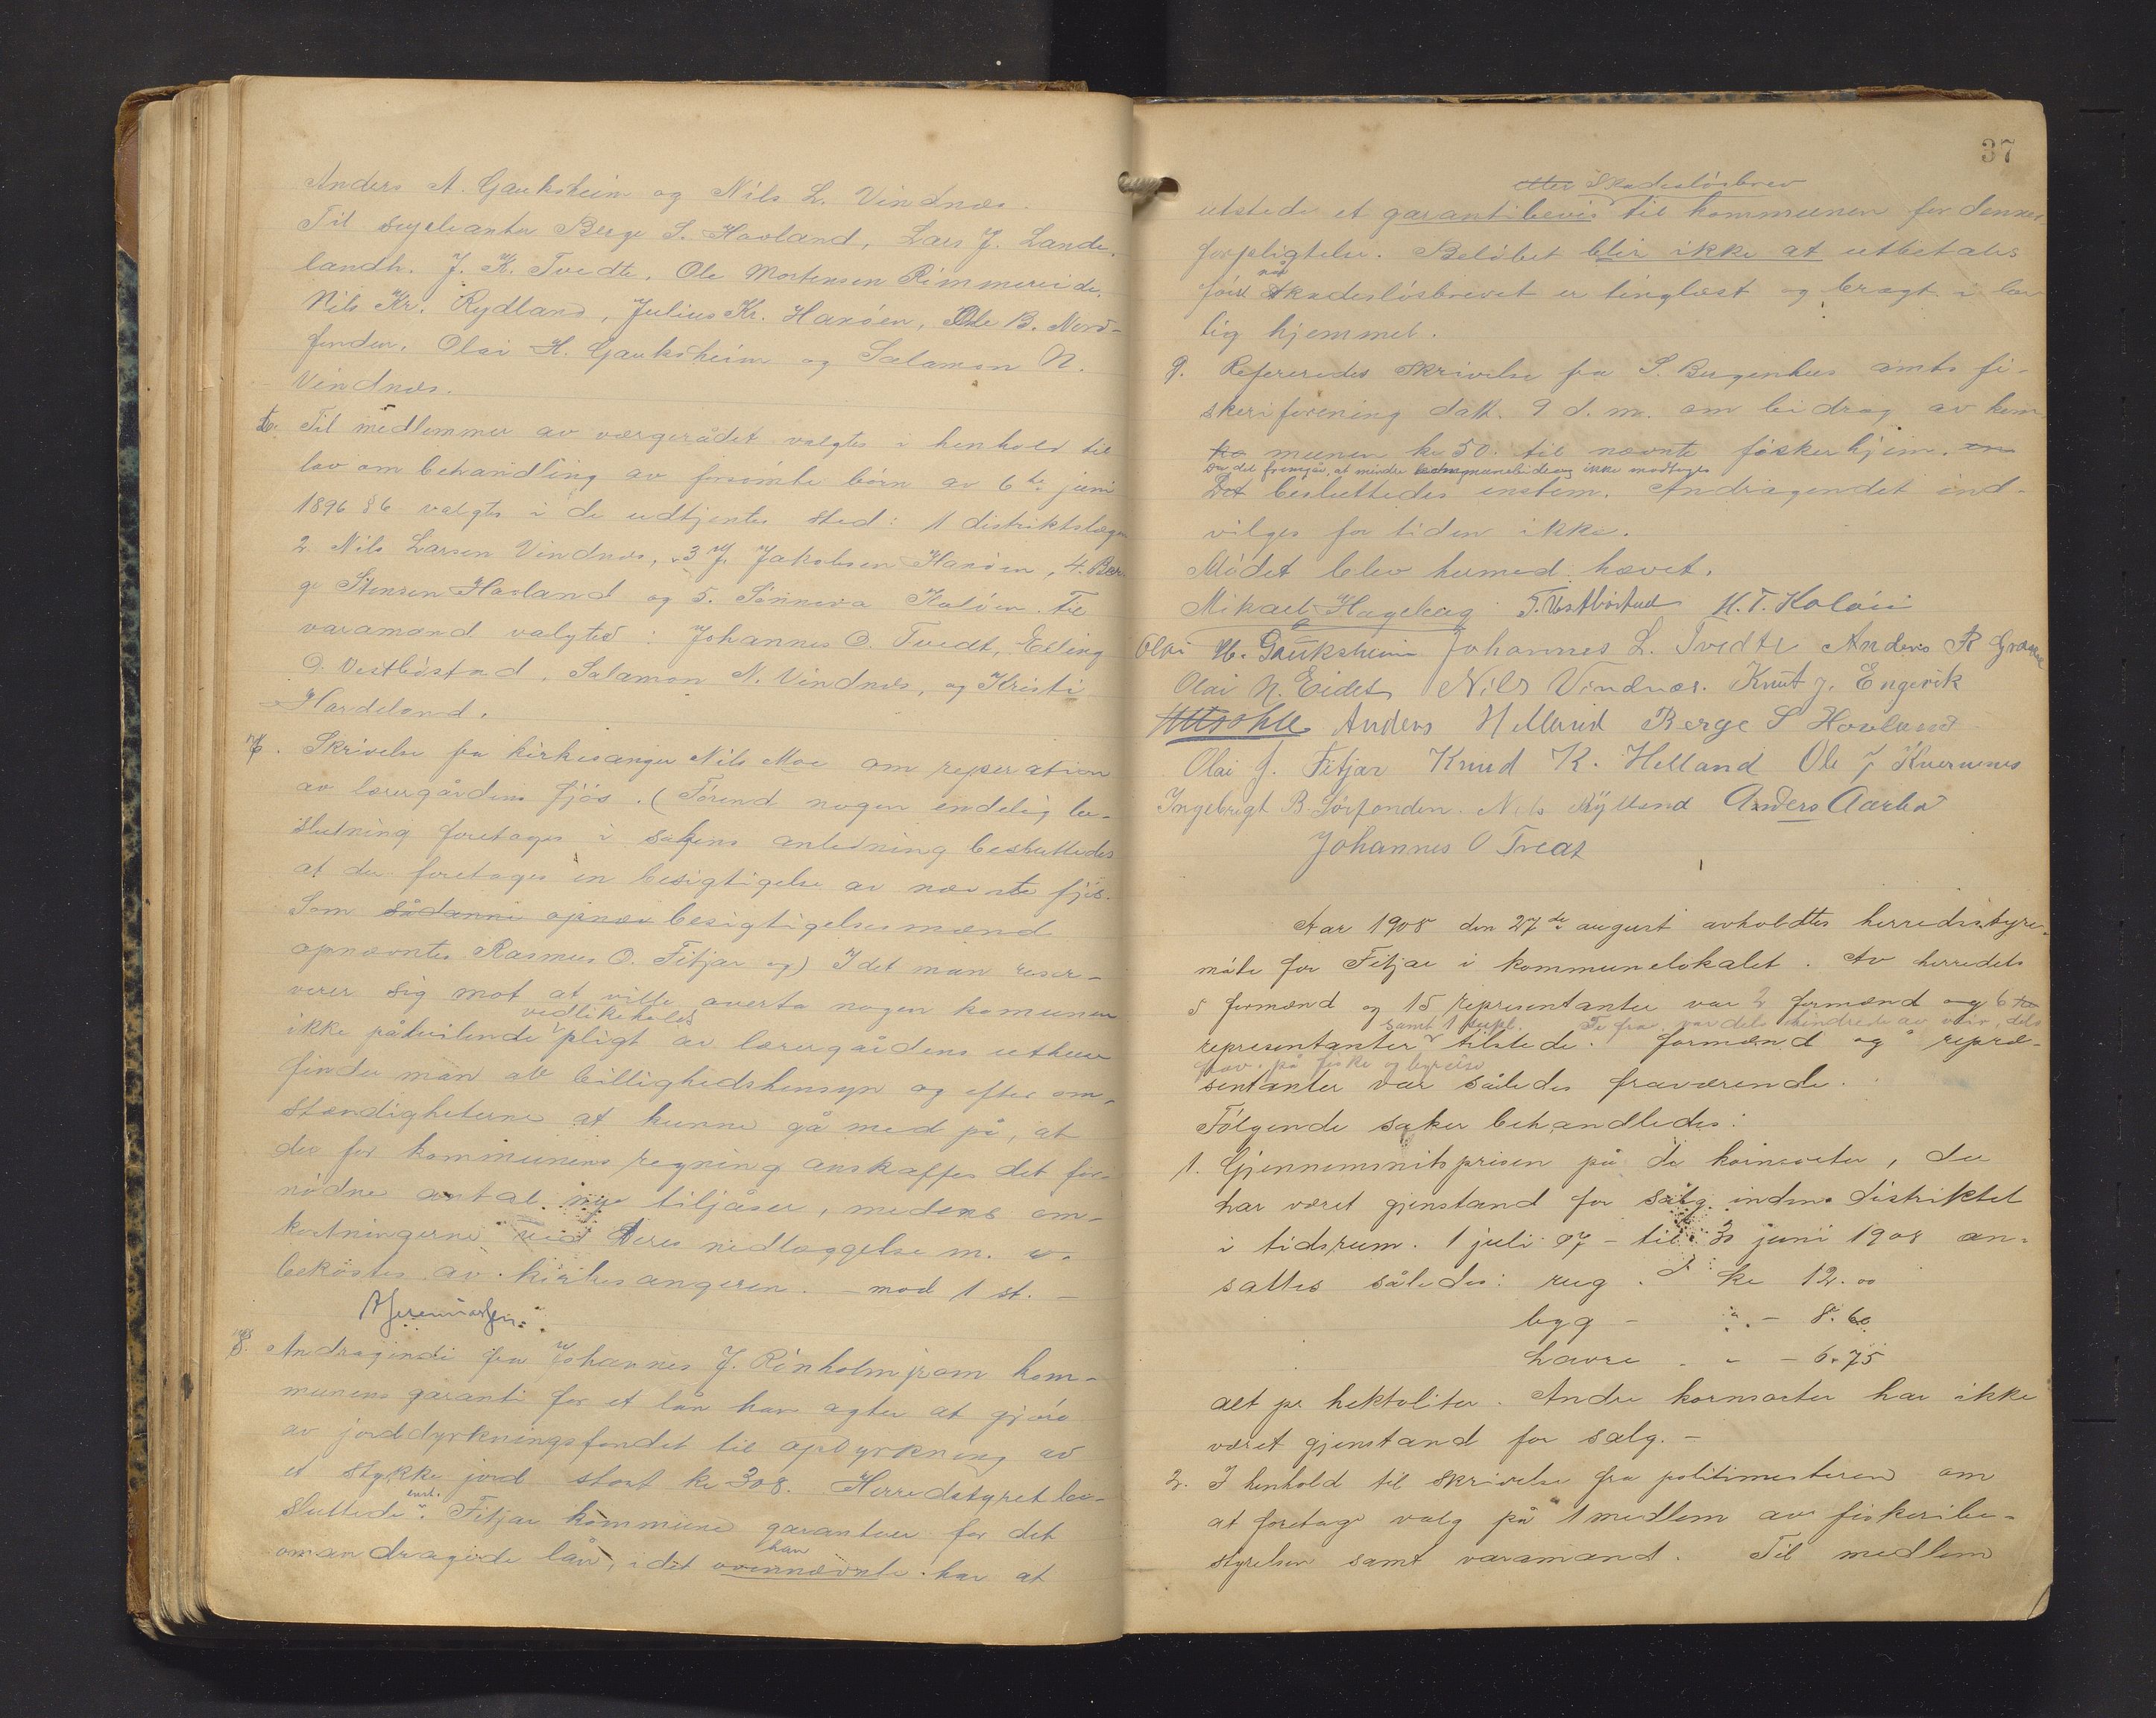 Anders A. Gauksheim og Nils L. Vindnes.
Til supleanter Berge S. Havland, Lars J. Lande.
landh. J. K. Tvedte, Ole Mortensen Rimmereide,
Nils Kr. Rydland, Julius Kr. Hanöen, Ole B. Nord-
fonden, Olai H. Gauksheim og Salamon N.
Vindnes.
6. Til medlemmer av værgerådet valgtes i henhold til
lov om behandling av forsömte börn av 6te juni
1896 § 6 valgtes i de udtjentes sted: 1 distriktslægen
2. Nils Larsen Vindnes, 3 J. Jakobsen Hanöen, 4. Ber-
ge Stensen Havland og 5. Sönneva Kalöen. Til
varamænd valgtes: Johannes O. Tvedt, Elling
O. Vestböstad, Salamon N. Vindnes, og Kristi
Hardeland.
7. Skrivelse fra kirkesanger Nils Moe om reperation
av lærergårdens fjös. (Förend nogen endelig be-
slutning foretages i sakens anledning besluttedes
at der foretages en besigtigelse av nævnte fjös.
Som sådanne opnæv besigtigelsesmænd
opnævntes Rasmus O. Fitjar og) Idet man reser-
verer sig mot at ville averta nogen komunen
vedlikeholds
ikke påhvilende pligt av lærergårdens uthuse
finder man av billighedshensyn og efter om-
stændigheterne at kunne gå med på, at
der for kommunens regning anskaffes det for-
nödne antal nye tiljåser, medens om-
kostningerne ved deres nedlæggelse m. v.
beköstes av kirkesangeren. - mod 1 st. -
8. Andragende fra Johannes J. Rönholm om kom-
munens garanti for et lån han agter at gjöre
av jorddyrkningsfondet til opdyrkning av
et stykke jord stort kr 308. Herredstyret be-
enst.
sluttede: Fitjar kommune garanterer for det
han
omandragende lån, idet ovennævnte har at
37
etter Skadeslösbrev
utstede et garantibevis til kommunen for dennes
forpligtelse. Belöbet blir ikke at utbetales
når
förel Skadeslösbrevet er tinglæst og bragt i lov
lig hjemmel.
9. Refereredes skrivelse fra S. Bergenhus amts fi-
skeriforening dat. 9 d. m. om bidrag av kom
ko munen kr 50. til nævnte fiskerhjem. en
Da det fremgår, at mindre kommunebidrag ikke modtages
Det besluttedes enstem. Andragendet ind-
vilges for tiden ikke.
Mödet blev hermed hævet.
Mikael Hageberg T. Vestböstad K. T. Kalöen
Olai H. Gauksheim Johannes L. Tvedte Anders R
Olai N. Eidet Nils Vindnes. Knut J. Engevik
Anders Helland Berge S Hovland
Olai J. Fitjar Knud K. Helland Ole J Kvernenes
Ingebrigt B. Sörfonden. Nils Rydland Anders Aarbø
Johannes O Tvedt
Aar 1908 den 27de august avholdtes herredsstyre-
möte for Fitjar i kommunelokalet. Av herredets
5 formænd og 15 representanter var 2 formænd og 6 re
samt 1 supl. De fra. var dels hindrede av veir, dels
representanter tilstede. formænd og repræ-
frav. på fiske og byreise
sentanter var således fraværende.
Fölgende saker behandledes:
1. Gjennemsnitsprisen på de kornsorter, der
har været gjenstand for salg inden distriktet
i tidsrum. 1 juli 07 - til 30 juni 1908 an-
sattes således: rug . kr 12.00
bygg - " - 8.60
havre - " - 6.75
alt pr hektoliter. Andre kornsorter har ikke
været gjenstand for salg. -
2. I henhold til skrivelse fra politimesteren om
at foretage valg på 1 medlem av fiskeribe-
styrelsen samt varamand. Til medlem